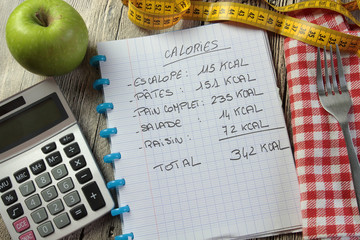 CALORIES
- ESCALOPE : 115 KCAL
- PÂTES : 151 KCAL
- PAIN COMPLET : 235 KCAL
- SALADE : 14 KCAL
- RAISIN : 72 KCAL
TOTAL 342 KCAL